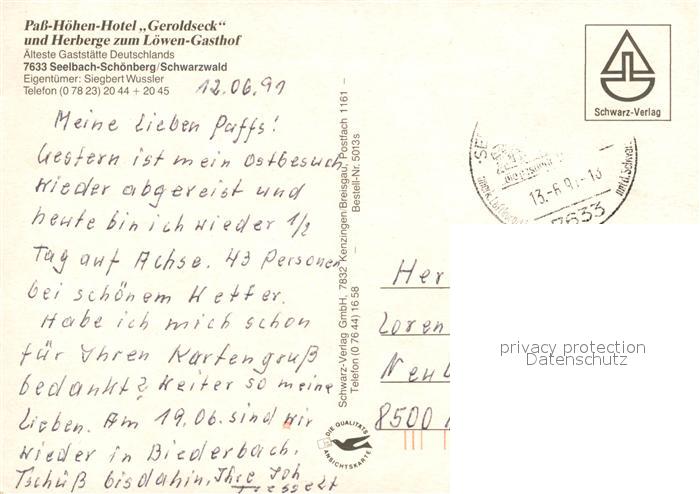 Paß-Höhen-Hotel „Geroldseck“
und Herberge zum Löwen-Gasthof
Älteste Gaststätte Deutschlands
7633 Seelbach-Schönberg/Schwarzwald
Eigentümer: Siegbert Wussler
Telefon (0 78 23) 20 44 + 20 45
12.06.91
Meine lieben Paffs!
Gestern ist mein Ostbesuch
wieder abgereist und
heute bin ich wieder 1/2
Tag auf Achse. 43 Personen
bei schönem Wetter.
Habe ich mich schon
für Ihren Kartengruß
bedankt? Weiter so meine
Lieben. Am 19.06. sind wir
wieder in Biederbach.
Tschüß bis dahin, Ihre
Schwarz-Verlag GmbH, 7832 Kenzingen/Breisgau, Postfach 1161 –
Telefon (0 76 44) 16 58 – Bestell-Nr. 5013s
DIE QUALITÄTS
ANSICHTSKARTE
Schwarz-Verlag
13.-6.91-18
7633
Her
Loren
Neu
8500
privacy protection
Datenschutz